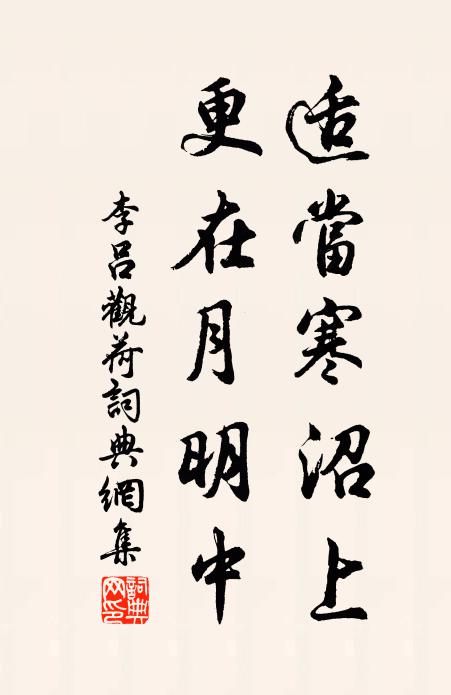 适當寒沼上
更在月明中
李吕觀荷詞典網集
詞典网印